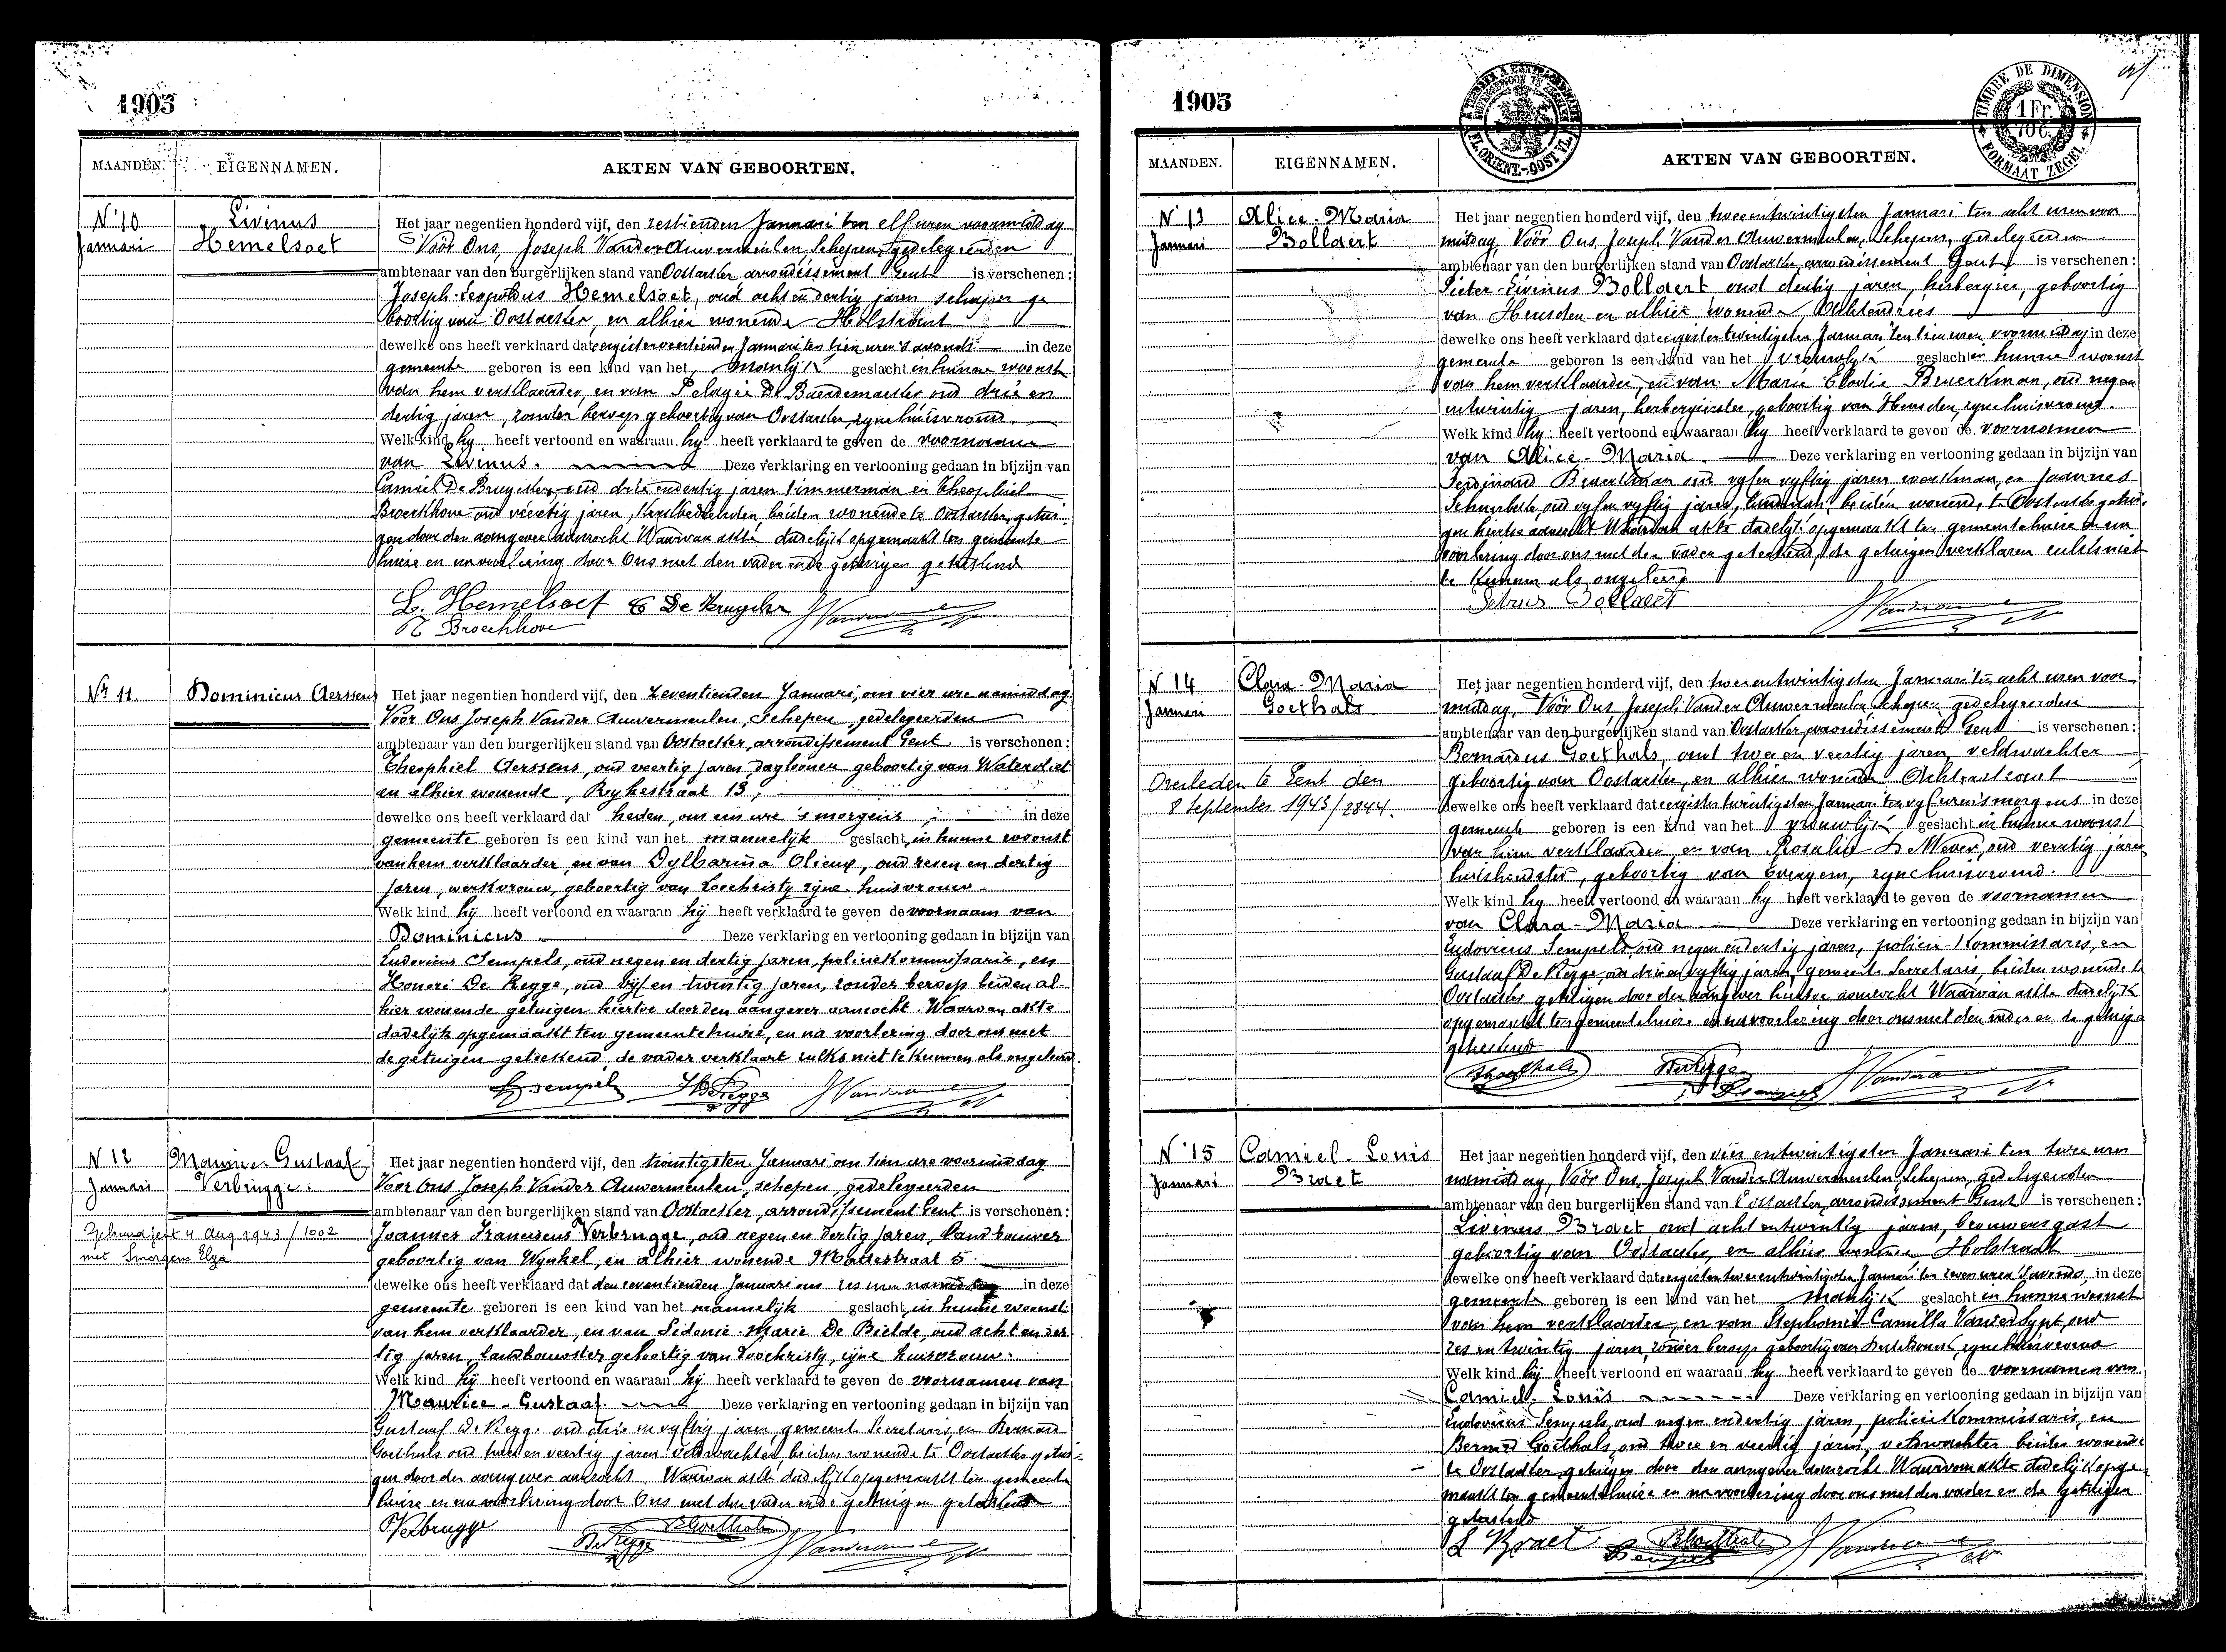 1905
MAANDEN. EIGENNAMEN. AKTEN VAN GEBOORTEN.
N° 10
Januari
Livinus
Hemelsoet
Het jaar negentien honderd vijf, den zestienden Januari ten elf uren voormiddag
Vóór Ons, Joseph Vander Auwermeulen, Schepen, gedelegeerden
ambtenaar van den burgerlijken stand van Oostacker, arrondissement Gent is verschenen:
Joseph Leopoldus Hemelsoet, oud acht en dertig jaren schaper ge
boortig van Oostacker, en alhier wonende Holstraat
dewelke ons heeft verklaard dat eergisteren veertienden Januari ten tien uren 's avonds in deze
gemeente geboren is een kind van het manlijk geslacht in hunne woonst
van hem verklaarder, en van Pelagie De Baerdemaecker oud drie en
dertig jaren, zonder beroep geboortig van Oostacker, zyne huisvrouw
Welk kind hy heeft vertoond en waaraan hy heeft verklaard te geven de voornamen
van Livinus. Deze verklaring en vertooning gedaan in bijzijn van
Camiel De Bruycker, oud drie en dertig jaren timmerman en Theophiel
Broeckhove oud veertig jaren, beiden wonende te Oostacker, getui
gen door den aangever aanzocht Waarvan akte dadelijk opgemaakt ten gemeente
huize en na voorlezing door Ons met den vader en de getuigen geteekend
L. Hemelsoet C De Bruycker J Vanderauwermeulen
T Broeckhove
Nr 11.
Dominicus Aerssens
Het jaar negentien honderd vijf, den zeventienden Januari, om vier ure namiddag
Voor Ons Joseph Vander Auwermeulen, schepen, gedelegeerden
ambtenaar van den burgerlijken stand van Oostacker, arrondissement Gent. is verschenen:
Theophiel Aerssens, oud veertig jaren, dagloner geboortig van Watervliet
en alhier wonende, Reykestraat 13,
dewelke ons heeft verklaard dat heden, om een ure 's morgens in deze
gemeente geboren is een kind van het mannelijk geslacht, in hunne woonst
van hem verklaarder, en van Dylbarina Olieux, oud zeven en dertig
jaren, werkvrouw, geboortig van Loochristy zyne huisvrouw.
Welk kind hij heeft vertoond en waaraan hij heeft verklaard te geven de voornaam van
Dominicus Deze verklaring en vertooning gedaan in bijzijn van
Ludovicus Sempels, oud negen en dertig jaren, policiekommissaris, en
Honoré De Regge, oud vijf en twintig jaren, zonder beroep beiden al-
hier wonende getuigen hiertoe door den aangever aanzocht. Waarvan akte
dadelijk opgemaakt ten gemeentehuize, en na voorlezing door ons met
de getuigen geteekend, de vader verklaart zulks niet te kunnen als ongeleerd.
L Sempels H De Regge J Vanderauwermeulen
N 12
Januari
Maurice-Gustaaf
Verbrugge.
Gehuwd Gent 4 Aug 1943/1002
met Smorgens Elza
Het jaar negentien honderd vijf, den twintigsten Januari om tien ure voormiddag
Voor Ons Joseph Vander Auwermeulen, schepen gedelegeerden
ambtenaar van den burgerlijken stand van Oostacker, arrondissement Gent is verschenen:
Joannes Franciscus Verbrugge, oud negen en dertig jaren, landbouwer
geboortig van Wynkel, en alhier wonende Meulestraat 5.
dewelke ons heeft verklaard dat den zeventienden Januari om zes uren namiddag in deze
gemeente geboren is een kind van het mannelijk geslacht, in hunne woonst
van hem verklaarder, en van Sidonie-Marie De Bielde, oud acht en der
tig jaren landbouwster geboortig van Loochristy, zijne huisvrouw.
Welk kind hij heeft vertoond en waaraan hij heeft verklaard te geven de voornamen van
Maurice-Gustaaf. Deze verklaring en vertooning gedaan in bijzijn van
Gustaaf De Regge oud drie en vyftig jaren gemeente Secretaris en Bernard
Goethals oud twee en veertig jaren veldwachter, beiden wonende te Oostacker getui-
gen door den aangever aanzocht. Waarvan akte dadelijk opgemaakt ten gemeente
huize en na voorlezing door Ons met den vader en de getuigen geteekend
Verbrugge De Regge B Goethals J Vanderauwermeulen
1905
TIMBRE DE DIMENSION
1 Fr.
70 c.
FORMAAT ZEGEL
MAANDEN. EIGENNAMEN. AKTEN VAN GEBOORTEN.
N° 13
Januari
Alice-Maria
Bollaert
Het jaar negentien honderd vijf, den twee entwintigsten Januari ten acht uren voor
middag, Vóór Ons, Joseph Vander Auwermeulen, Schepen, gedelegeerden
ambtenaar van den burgerlijken stand van Oostacker, arrondissement Gent, is verschenen:
Pieter-Livinus Bollaert oud dertig jaren, herbergier, geboortig
van Heusden en alhier wonende, Achtendries
dewelke ons heeft verklaard dat eergisteren twintigsten Januari ten tien uren voormiddag in deze
gemeente geboren is een kind van het vrouwlijk geslacht in hunne woonst
van hem verklaarder, en van Marie Elodie Braeckman, oud negen
entwintig jaren, herbergierster, geboortig van Heusden, zyne huisvrouw.
Welk kind hy heeft vertoond en waaraan hy heeft verklaard te geven de voornamen
van Alice-Maria. Deze verklaring en vertooning gedaan in bijzijn van
Ferdinand Braeckman oud vyf en vyftig jaren, werkman, en Joannes
oud vyf en vyftig jaren, beiden wonende te Oostacker getui-
gen hiertoe aanzocht Waarvan akte dadelijk opgemaakt ten gemeentehuize en na
voorlezing door ons met den vader geteekend, de getuigen verklaren zulks niet
te kunnen als ongeleerd
Petrus Bollaert J Vanderauwermeulen
N 14
Januari
Clara-Maria
Goethals
Overleden te Gent den
8 september 1943/2844.
Het jaar negentien honderd vijf, den twee entwintigsten Januari ten acht uren voor
middag, Vóór Ons, Joseph Vander Auwermeulen Schepen gedelegeerden
ambtenaar van den burgerlijken stand van Oostacker, arrondissement Gent is verschenen:
Bernardus Goethals, oud twee en veertig jaren, veldwachter
geboortig van Oostacker, en alhier wonende Achterstraat
dewelke ons heeft verklaard dat eergisteren twintigsten Januari ten vyf uren 's morgens in deze
gemeente geboren is een kind van het vrouwlijk geslacht in hunne woonst
van hem verklaarder en van Rosalie De Meyer, oud veertig jaren
huishoudster, geboortig van Evergem, zyne huisvrouw.
Welk kind hy heeft vertoond en waaraan hy heeft verklaard te geven de voornamen
van Clara-Maria Deze verklaring en vertooning gedaan in bijzijn van
Ludovicus Sempels, oud negen en dertig jaren, policie-kommissaris, en
Gustaaf De Regge, oud drie en vyftig jaren, gemeente Secretaris, beiden wonende te
Oostacker getuigen door den aangever hiertoe aanzocht Waarvan akte dadelijk
opgemaakt ten gemeentehuize en na voorlezing door ons met den vader en de getuigen
geteekend
B Goethals De Regge L Sempels J Vanderauwermeulen
N° 15
Januari
Camiel-Louis
Braet
Het jaar negentien honderd vijf, den vier entwintigsten Januari ten twee uren
namiddag, Vóór Ons, Joseph Vander Auwermeulen, Schepen, gedelegeerden
ambtenaar van den burgerlijken stand van Oostacker, arrondissement Gent is verschenen:
Livinus Braet oud acht entwintig jaren, brouwersgast
geboortig van Oostacker, en alhier wonende Holstraat
dewelke ons heeft verklaard dat eergisteren twee entwintigsten Januari ten zeven uren 's avonds, in deze
gemeente geboren is een kind van het manlijk geslacht in hunne woonst
van hem verklaarder, en van Stephanie-Camilla Vandersypt, oud
zes entwintig jaren, zonder beroep geboortig van zyne huisvrouw
Welk kind hij heeft vertoond en waaraan hy heeft verklaard te geven de voornamen van
Camiel-Louis Deze verklaring en vertooning gedaan in bijzijn van
Ludovicus Sempels, oud negen endertig jaren, policiekommissaris, en
Bernard Goethals, oud twee en veertig jaren, veldwachter beiden wonende
te Oostacker getuigen door den aangever aanzocht Waarvan akte dadelijk opge-
maakt ten gemeentehuize en na voorlezing door ons met den vader en de getuigen
geteekend
L Braet L Sempels B Goethals J Vanderauwermeulen